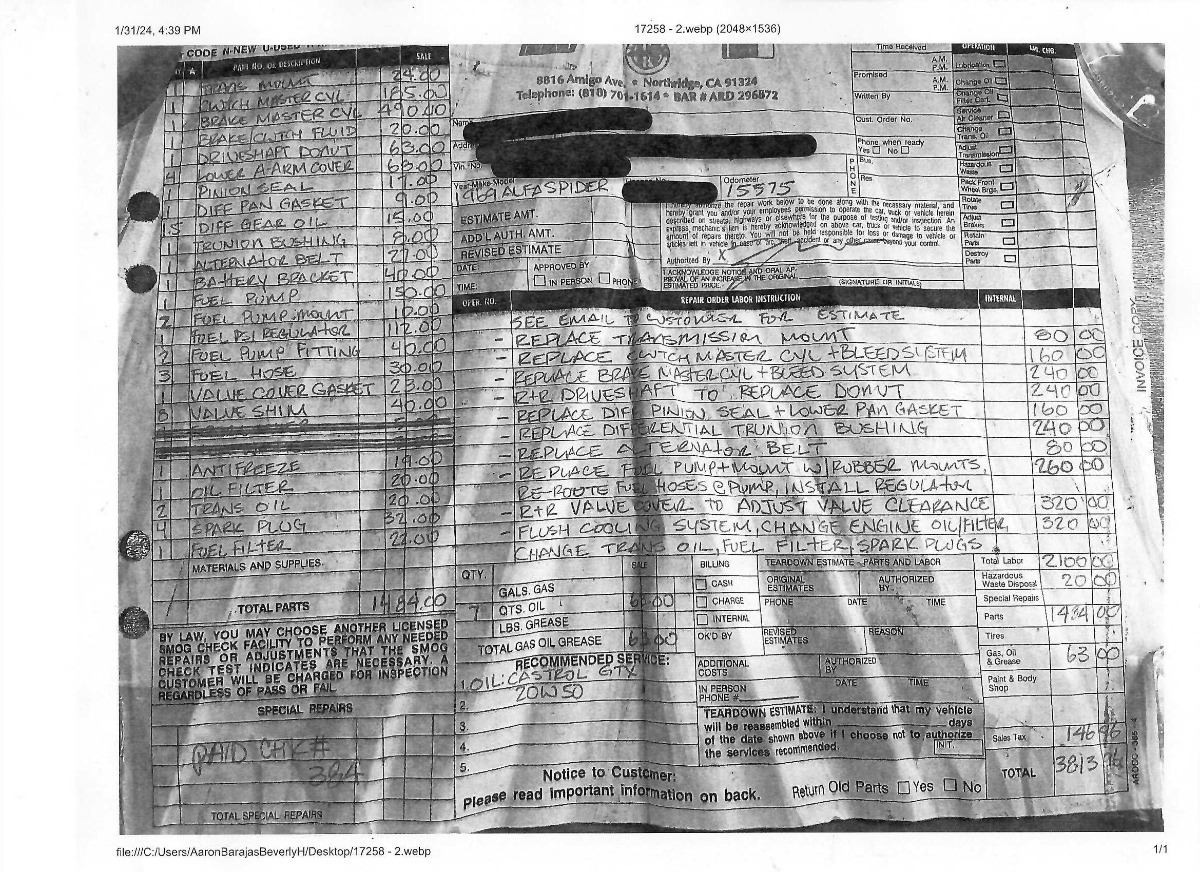 1/31/24, 4:39 PM
17258 - 2.webp (2048×1536)
CODE N-NEW U-USED
PART NO. OR DESCRIPTION SALE
1 TRANS MOUNT 24.00
1 CLUTCH MASTER CYL
1 BRAKE MASTER CYL 490.00
1 BRAKE/CLUTCH FLUID 20.00
1 DRIVESHAFT DONUT 63.00
4 LOWER A-ARM COVER 68.00
1 PINION SEAL 17.00
1 DIFF PAN GASKET 9.00
1.5 DIFF GEAR OIL 15.00
1 TRUNION BUSHING 8.00
1 ALTERNATOR BELT
1 BATTERY BRACKET 40.00
1 FUEL PUMP 150.00
2 FUEL PUMP MOUNT 10.00
1 FUEL PSI REGULATOR 112.00
2 FUEL PUMP FITTING 40.00
3 FUEL HOSE 30.00
1 VALVE COVER GASKET 23.00
8 VALVE SHIM 40.00
1 ANTIFREEZE 19.00
1 OIL FILTER 20.00
2 TRANS OIL 20.00
4 SPARK PLUG 32.00
1 FUEL FILTER 22.00
MATERIALS AND SUPPLIES.
TOTAL PARTS 1484.00
BY LAW, YOU MAY CHOOSE ANOTHER LICENSED
SMOG CHECK FACILITY TO PERFORM ANY NEEDED
REPAIRS OR ADJUSTMENTS THAT THE SMOG
CHECK TEST INDICATES ARE NECESSARY. A
CUSTOMER WILL BE CHARGED FOR INSPECTION
REGARDLESS OF PASS OR FAIL
SPECIAL REPAIRS
PAID CHK#
384
TOTAL SPECIAL REPAIRS
8816 Amigo Ave. • Northridge, CA 91324
Telephone: (818) 701-1614 • BAR # ARD 296872
Name
Addr
Vin. No.
Year-Make-Model
1969 ALFA SPIDER
Odometer
15575
ESTIMATE AMT.
ADD'L AUTH. AMT.
REVISED ESTIMATE
DATE: APPROVED BY
TIME: IN PERSON PHONE
I hereby authorize the repair work below to be done along with the necessary material, and
hereby grant you and/or your employees permission to operate the car, truck or vehicle herein
described on streets, highways or elsewhere for the purpose of testing and/or inspection. An
express mechanic's lien is hereby acknowledged on above car, truck or vehicle to secure the
amount of repairs thereto. You will not be held responsible for loss or damage to vehicle or
articles left in vehicle in case of fire, theft, accident or any other cause beyond your control.
Authorized By X
I ACKNOWLEDGE NOTICE AND ORAL AP-
PROVAL OF AN INCREASE IN THE ORIGINAL
ESTIMATED PRICE.
(SIGNATURE OR INITIALS)
Time Received A.M. P.M.
Promised A.M. P.M.
Written By
Cust. Order No.
Phone when ready
Yes No
PHONE
Bus.
Res.
OPERATION
Lubrication
Change Oil
Change Oil
Filter Cart.
Service
Air Cleaner
Change
Trans. Oil
Adjust
Transmission
Hazardous
Waste
Pack Front
Wheel Brgs.
Rotate
Tires
Adjust
Brakes
Retain
Parts
Destroy
Parts
OPER. NO. REPAIR ORDER LABOR INSTRUCTION INTERNAL
SEE EMAIL TO CUSTOMER FOR ESTIMATE
- REPLACE TRANSMISSION MOUNT 80 00
- REPLACE CLUTCH MASTER CYL + BLEED SYSTEM 160 00
- REPLACE BRAKE MASTER CYL + BLEED SYSTEM 240 00
- R+R DRIVESHAFT TO REPLACE DONUT 240 00
- REPLACE DIFF PINION SEAL + LOWER PAN GASKET 160 00
- REPLACE DIFFERENTIAL TRUNION BUSHING 240 00
- REPLACE ALTERNATOR BELT 80 00
- REPLACE FUEL PUMP + MOUNT W/ RUBBER MOUNTS, 260 00
RE-ROUTE FUEL HOSES @ PUMP, INSTALL REGULATOR
- R+R VALVE COVER TO ADJUST VALVE CLEARANCE 320 00
- FLUSH COOLING SYSTEM, CHANGE ENGINE OIL/FILTER 320 00
CHANGE TRANS OIL, FUEL FILTER, SPARK PLUGS
QTY. SALE
GALS. GAS
7 QTS. OIL 63.00
LBS. GREASE
TOTAL GAS OIL GREASE 63.00
RECOMMENDED SERVICE:
1. OIL: CASTROL GTX
20W50
2.
3.
4.
5.
BILLING
CASH
CHARGE
INTERNAL
OK'D BY
ADDITIONAL
COSTS
IN PERSON
PHONE #
TEARDOWN ESTIMATE - PARTS AND LABOR
ORIGINAL ESTIMATES AUTHORIZED BY
PHONE DATE TIME
REVISED ESTIMATES REASON
AUTHORIZED BY
DATE TIME
TEARDOWN ESTIMATE: I understand that my vehicle
will be reassembled within days
of the date shown above if I choose not to authorize
the services recommended. INIT.
Total Labor 2100 00
Hazardous
Waste Disposal 20 00
Special Repairs
Parts 1484 00
Tires
Gas, Oil
& Grease 63 00
Paint & Body
Shop
Sales Tax 146 96
TOTAL 3813 96
Notice to Customer:
Please read important information on back.
Return Old Parts Yes No
INVOICE COPY
file:///C:/Users/AaronBarajasBeverlyH/Desktop/17258 - 2.webp
1/1